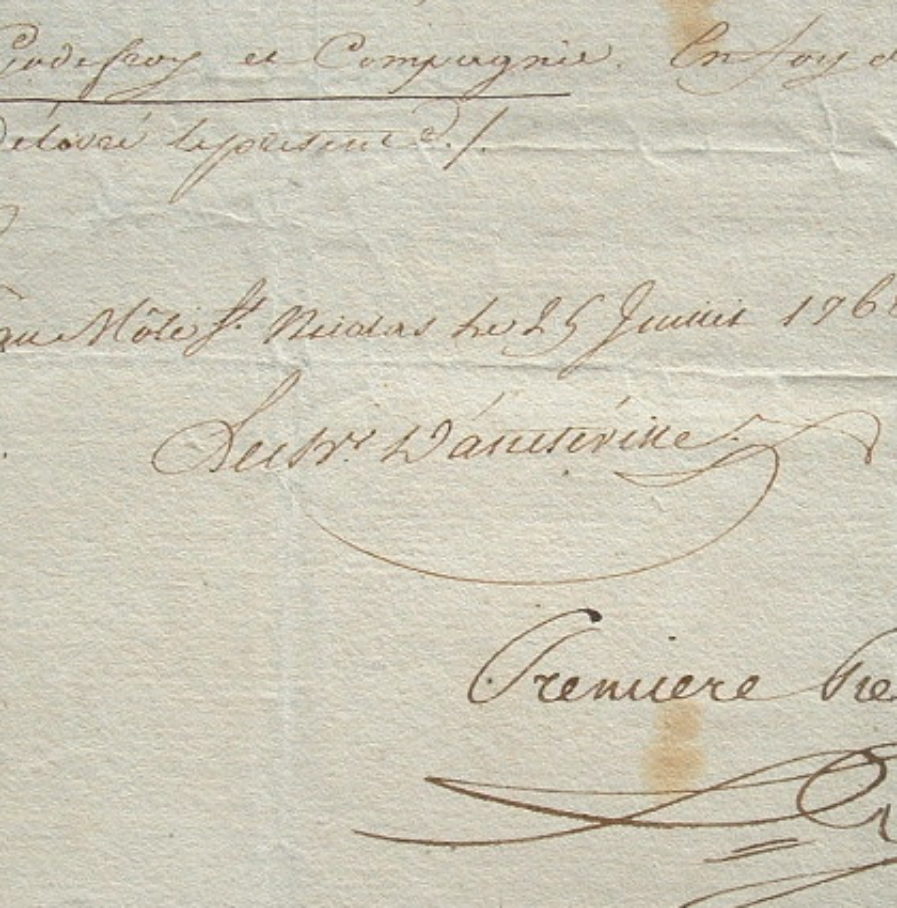 Godefroy et Compagnie. En foy d
délivré le present
au Môle St. Nicolas le 25 Juillet 176
Premiere